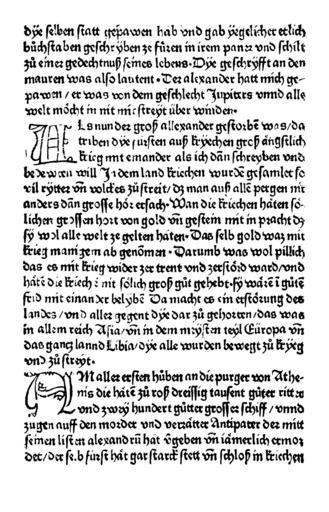 dÿe selben statt gepawen hab vnd gab ÿegelicher etlich
bůchstaben geschrÿben ze fůren in irem paner vnd schilt
zů einer gedechtnuß seines lebens. Dÿe geschrÿfft an den
mauren was also lautent. Der alexander hatt mich ge-
pawen/er was von dem geschlecht Jupiters vnnd alle
welt möcht in nit mit streyt über winden.
ALs nun der groß allexander gestorbẽ was/da
triben dÿe fürsten auß kryechen groß ängstlich
krieg mit einander als ich dañ schreyben vnd
bedewten will In dem land kriechen wurdẽ gesamlet so
vil rÿtter vñ volckes zů streit/dz man auff allẽ pergen nit
anders dañ grosse hör ersach. Wan die kriechen hatẽn sö-
lichen grossen hort von gold vñ gestein mit in pracht dz
sÿ wol alle welt ze gelten hatẽn. Das selb gold waz mit
krieg manigem ab genõmen. Darumb was wol pillich
das es mit krieg wider zertrent vnd zerstörd ward/vnd
hatẽ die kriechẽ nit sölich groß gůt gehebt sÿ wärẽ ĩ gůtẽ
frid mit einander belybẽ Da macht es ein erstörung des
landes/vnd aller gegent dÿe dar zů gehorten/das was
in allem reich Asia/vñ in dem meÿsten teyl Europa vñ
das gancz lannd Libia/dÿe alle wurden bewegt zů krÿeg
vnd zů streyt.
AM aller ersten hůben an die purger von Athe-
nis die hatẽ zů roß dreissig tausent gůter ritter
vnd zwey hundert gůtter grosser schiff/vnnd
zugen auff den morder vnd verrätter Antipater der mitt
seinen listen alexandrũ hat v̈geben vñ iämerlich ermor
det/der selb fürst hat gar starck stett vñ schloß in kriechen